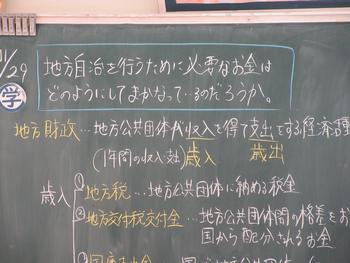 1/29
学
地方自治を行うために必要なお金は
どのようにしてまかなっているのだろうか。
地方財政…地方公共団体が収入を得て支出をする経済活動
(1年間の収入・支出) 歳入 歳出
歳入
①地方税…地方公共団体に納める税金
②地方交付税交付金…地方公共団体間の格差をお
国から配分されるお金